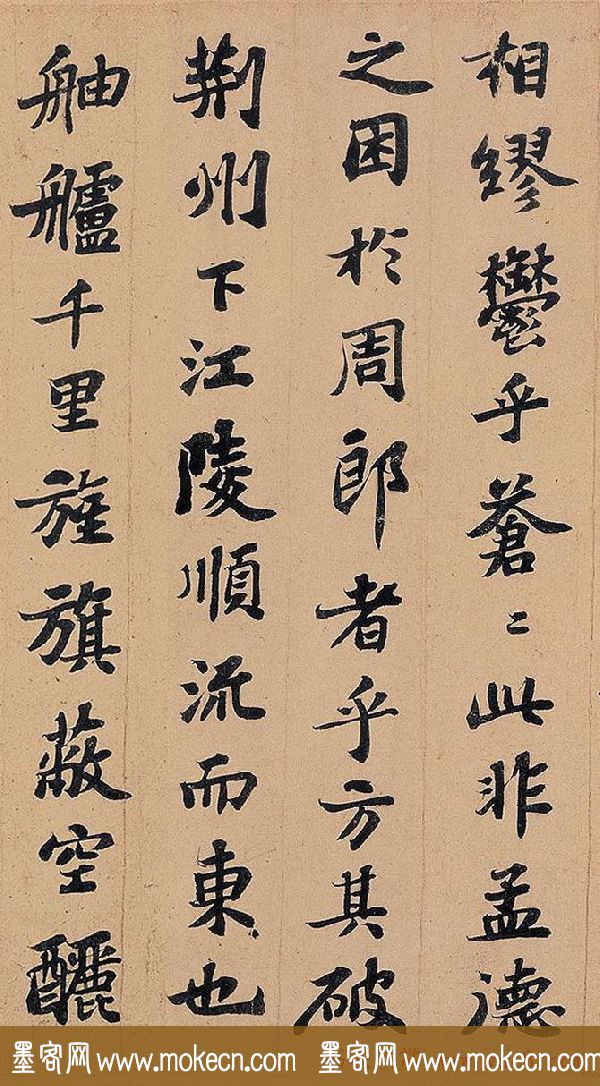 相繆鬱乎蒼〻此非孟德
之困於周郎者乎方其破
荆州下江陵順流而東也
舳艫千里旌旗蔽空釃
墨客网 www.mokecn.com 墨客网 www.mokecn.com